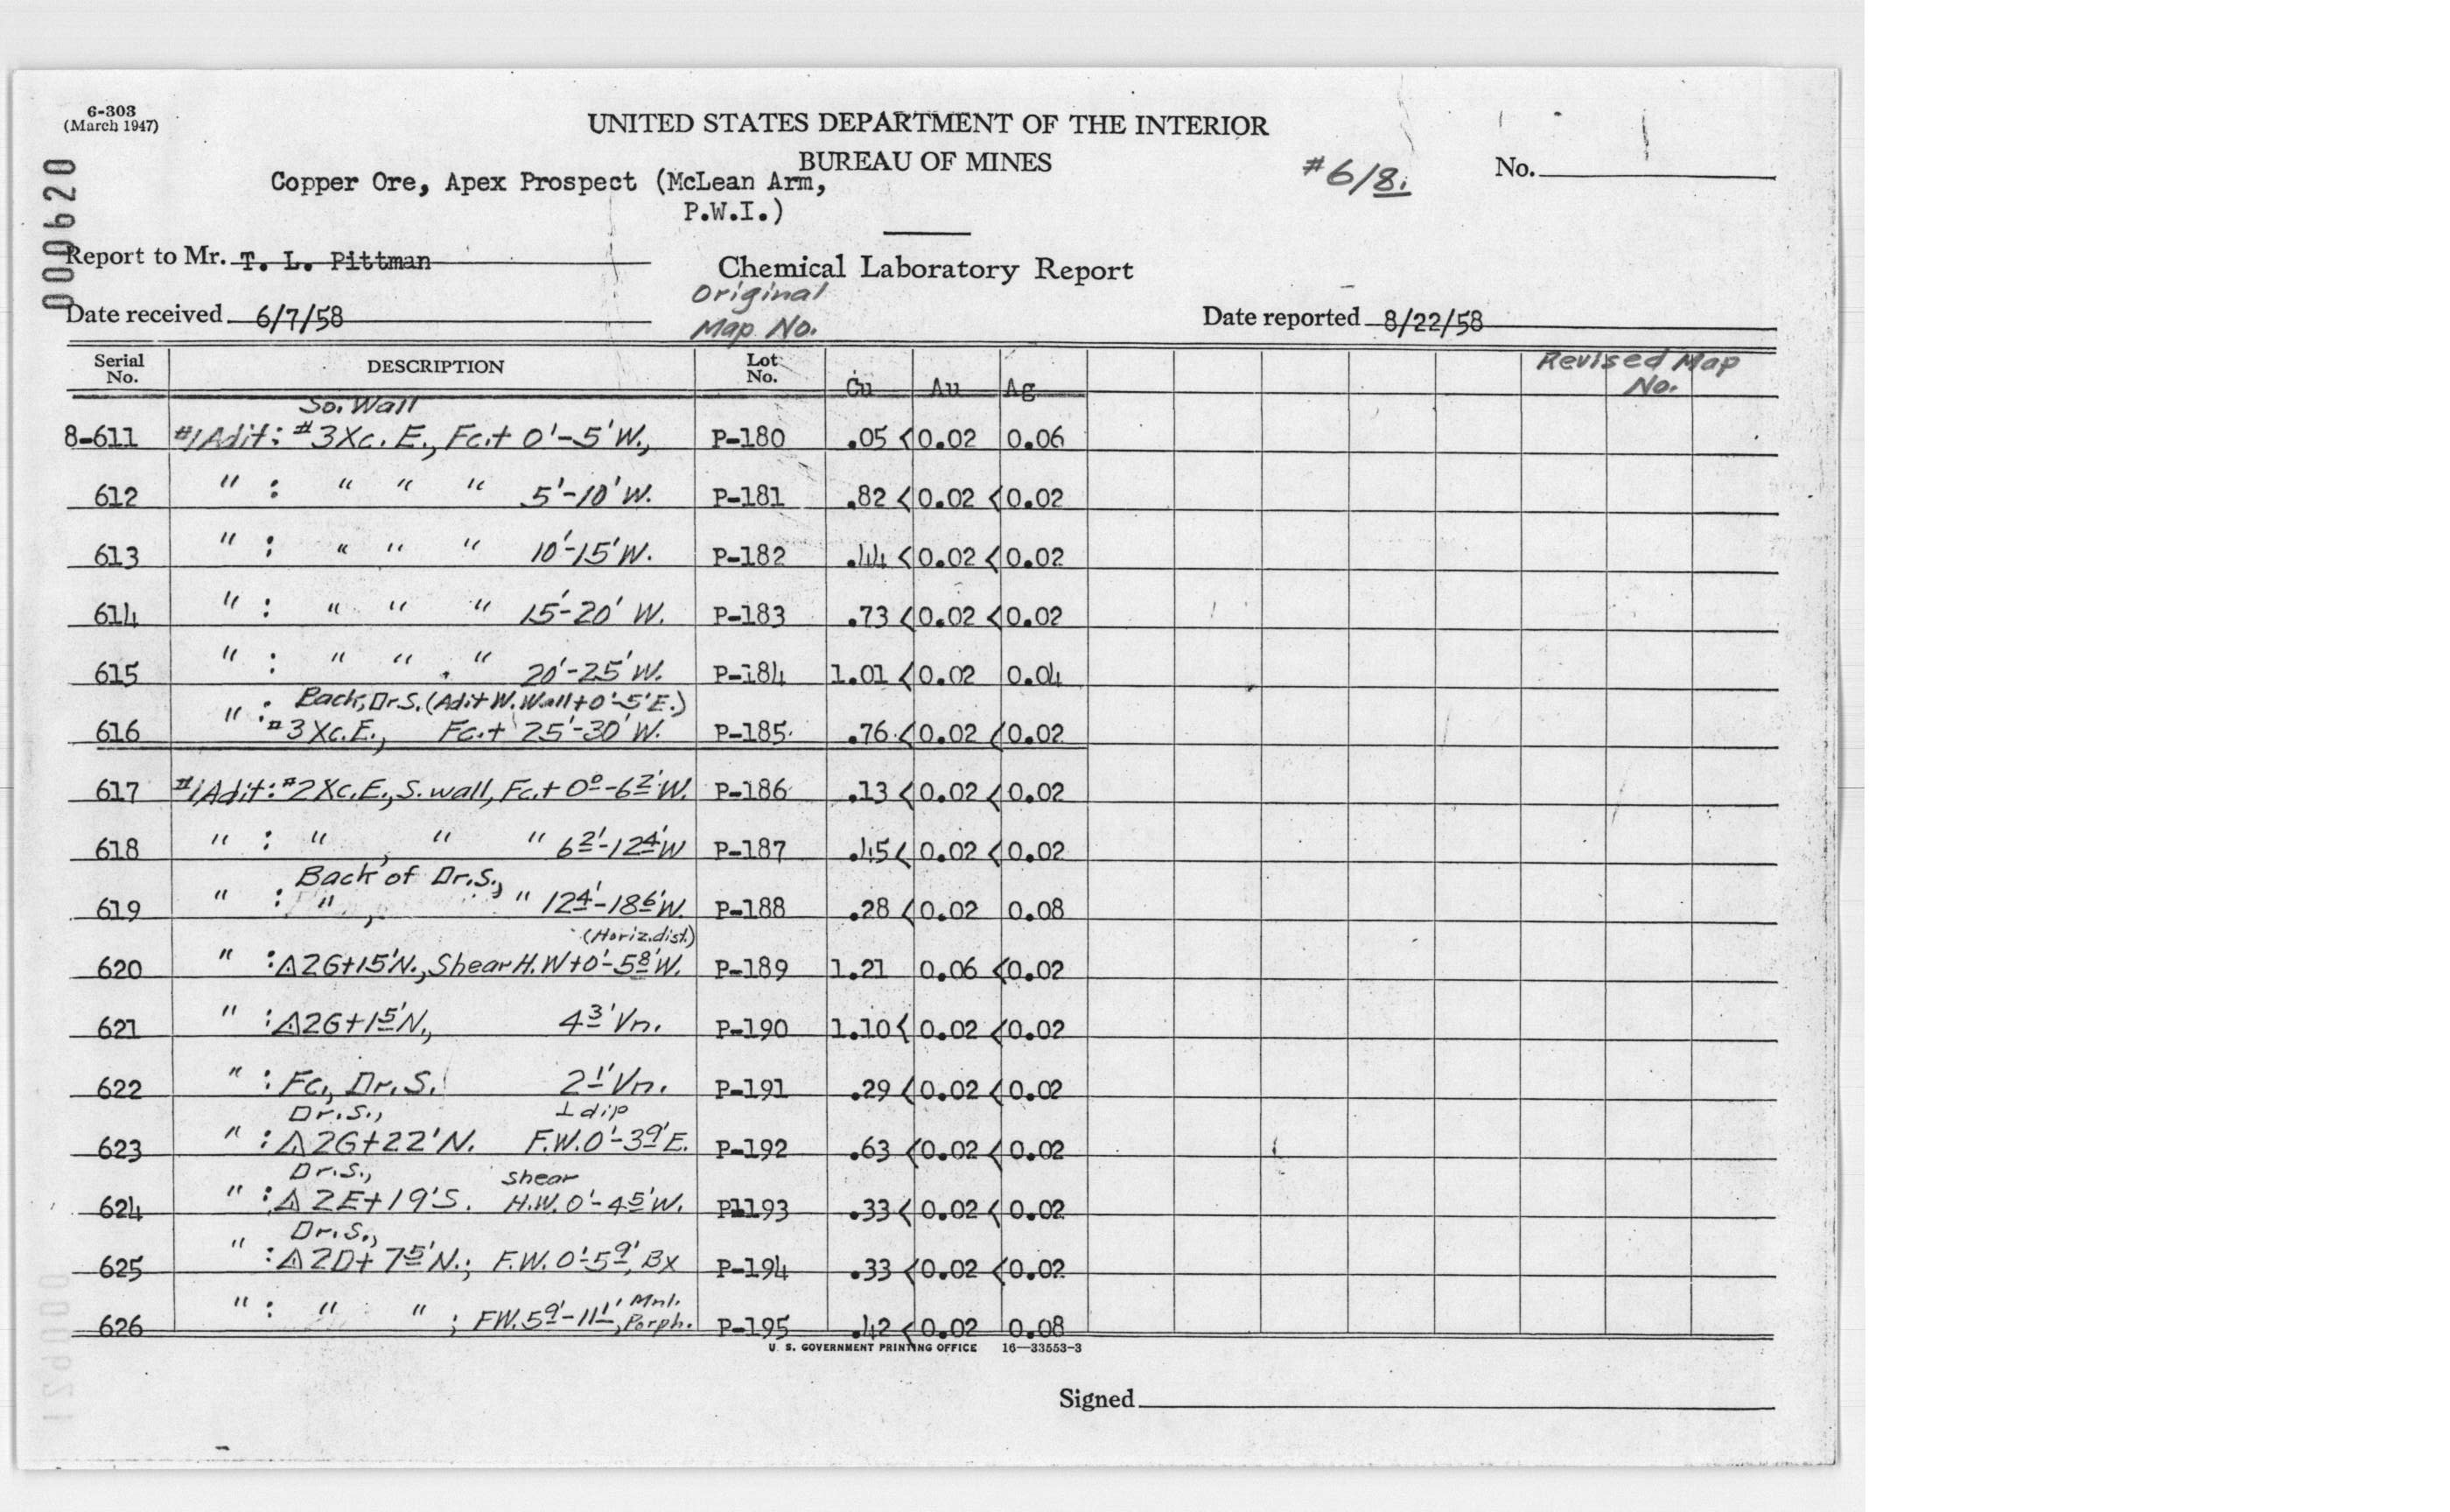 6-303
(March 1947)
UNITED STATES DEPARTMENT OF THE INTERIOR
BUREAU OF MINES
Copper Ore, Apex Prospect (McLean Arm,
P.W.I.)
#6/8.
No.
000620
Report to Mr. T. L. Pittman
Chemical Laboratory Report
Original
Map No.
Date received 6/7/58
Date reported 8/22/58
Serial No. DESCRIPTION Lot No. Cu Au Ag Revised Map No.
So. Wall
8-611 #1 Adit: #3 Xc. E., Fc.+ 0'-5' W., P-180 .05 <0.02 0.06
612 " : " " " 5'-10' W. P-181 .82 <0.02 <0.02
613 " : " " " 10'-15' W. P-182 .44 <0.02 <0.02
614 " : " " " 15'-20' W. P-183 .73 <0.02 <0.02
615 " : " " " 20'-25' W. P-184 1.01 <0.02 0.04
Back, Dr. S. (Adit W. Wall+0'-5'E.)
616 " : #3 Xc. E., Fc.+ 25'-30' W. P-185 .76 <0.02 <0.02
617 #1 Adit: #2 Xc. E., S. wall, Fc.+ 0⁰-6²' W. P-186 .13 <0.02 <0.02
618 " : " , " " 6²'-12⁴' W P-187 .45 <0.02 <0.02
Back of Dr. S.,
619 " : " , " 12⁴'-18⁶' W. P-188 .28 <0.02 0.08
(Horiz. dist.)
620 " : △2G+15'N., Shear H.W+0'-5⁸' W. P-189 1.21 0.06 <0.02
621 " : △2G+1⁵'N., 4³' Vn. P-190 1.10 <0.02 <0.02
622 " : Fc., Dr. S. 2¹' Vn. P-191 .29 <0.02 <0.02
Dr. S., ⊥ dip
623 " : △2G+22'N. F.W. 0'-3⁹' E. P-192 .63 <0.02 <0.02
Dr. S., Shear
624 " : △2E+19'S. H.W. 0'-4⁵' W. P-193 .33 <0.02 <0.02
Dr. S.,
625 " : △2D+7⁵'N.; F.W. 0'-5⁹', Bx P-194 .33 <0.02 <0.02
Mnl.
626 " : " " ; FW. 5⁹'-11¹', Porph. P-195 .42 <0.02 0.08
U. S. GOVERNMENT PRINTING OFFICE 16—33553-3
Signed